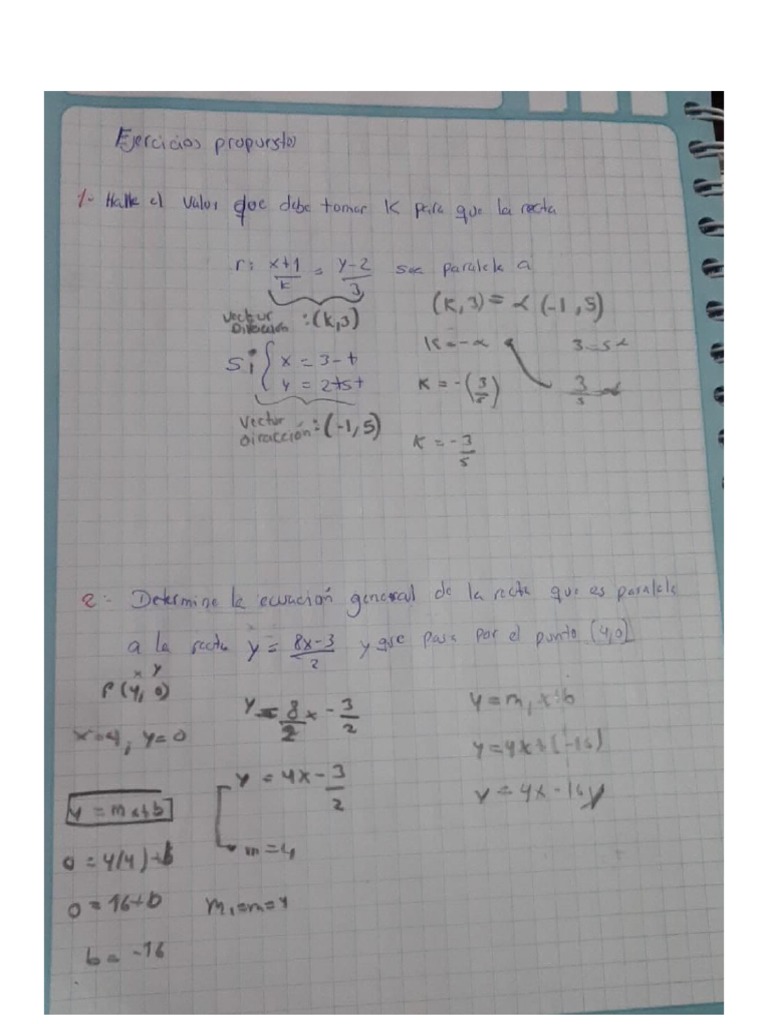 Ejercicios propuestos
1.- Halle el valor que debe tomar K para que la recta
r: x+1/K = y-2/3 sea paralela a
vector Dirección : (K,3)
S: { x = 3-t
y = 2+5t
vector dirección : (-1,5)
(K,3) = α (-1,5)
K = -α 3=5α
K = -(3/5) 3/5 = α
K = -3/5
2.- Determine la ecuación general de la recta que es paralela
a la recta y = 8x-3/2 y que pasa por el punto (4,0)
x y
P(4, 0)
x=4, y=0
y = mx+b
0 = 4(4)+b
0 = 16+b
b = -16
y = 8/2 x - 3/2
y = 4x - 3/2
m = 4
m₁=m=4
y = m₁x+b
y = 4x+(-16)
y = 4x - 16